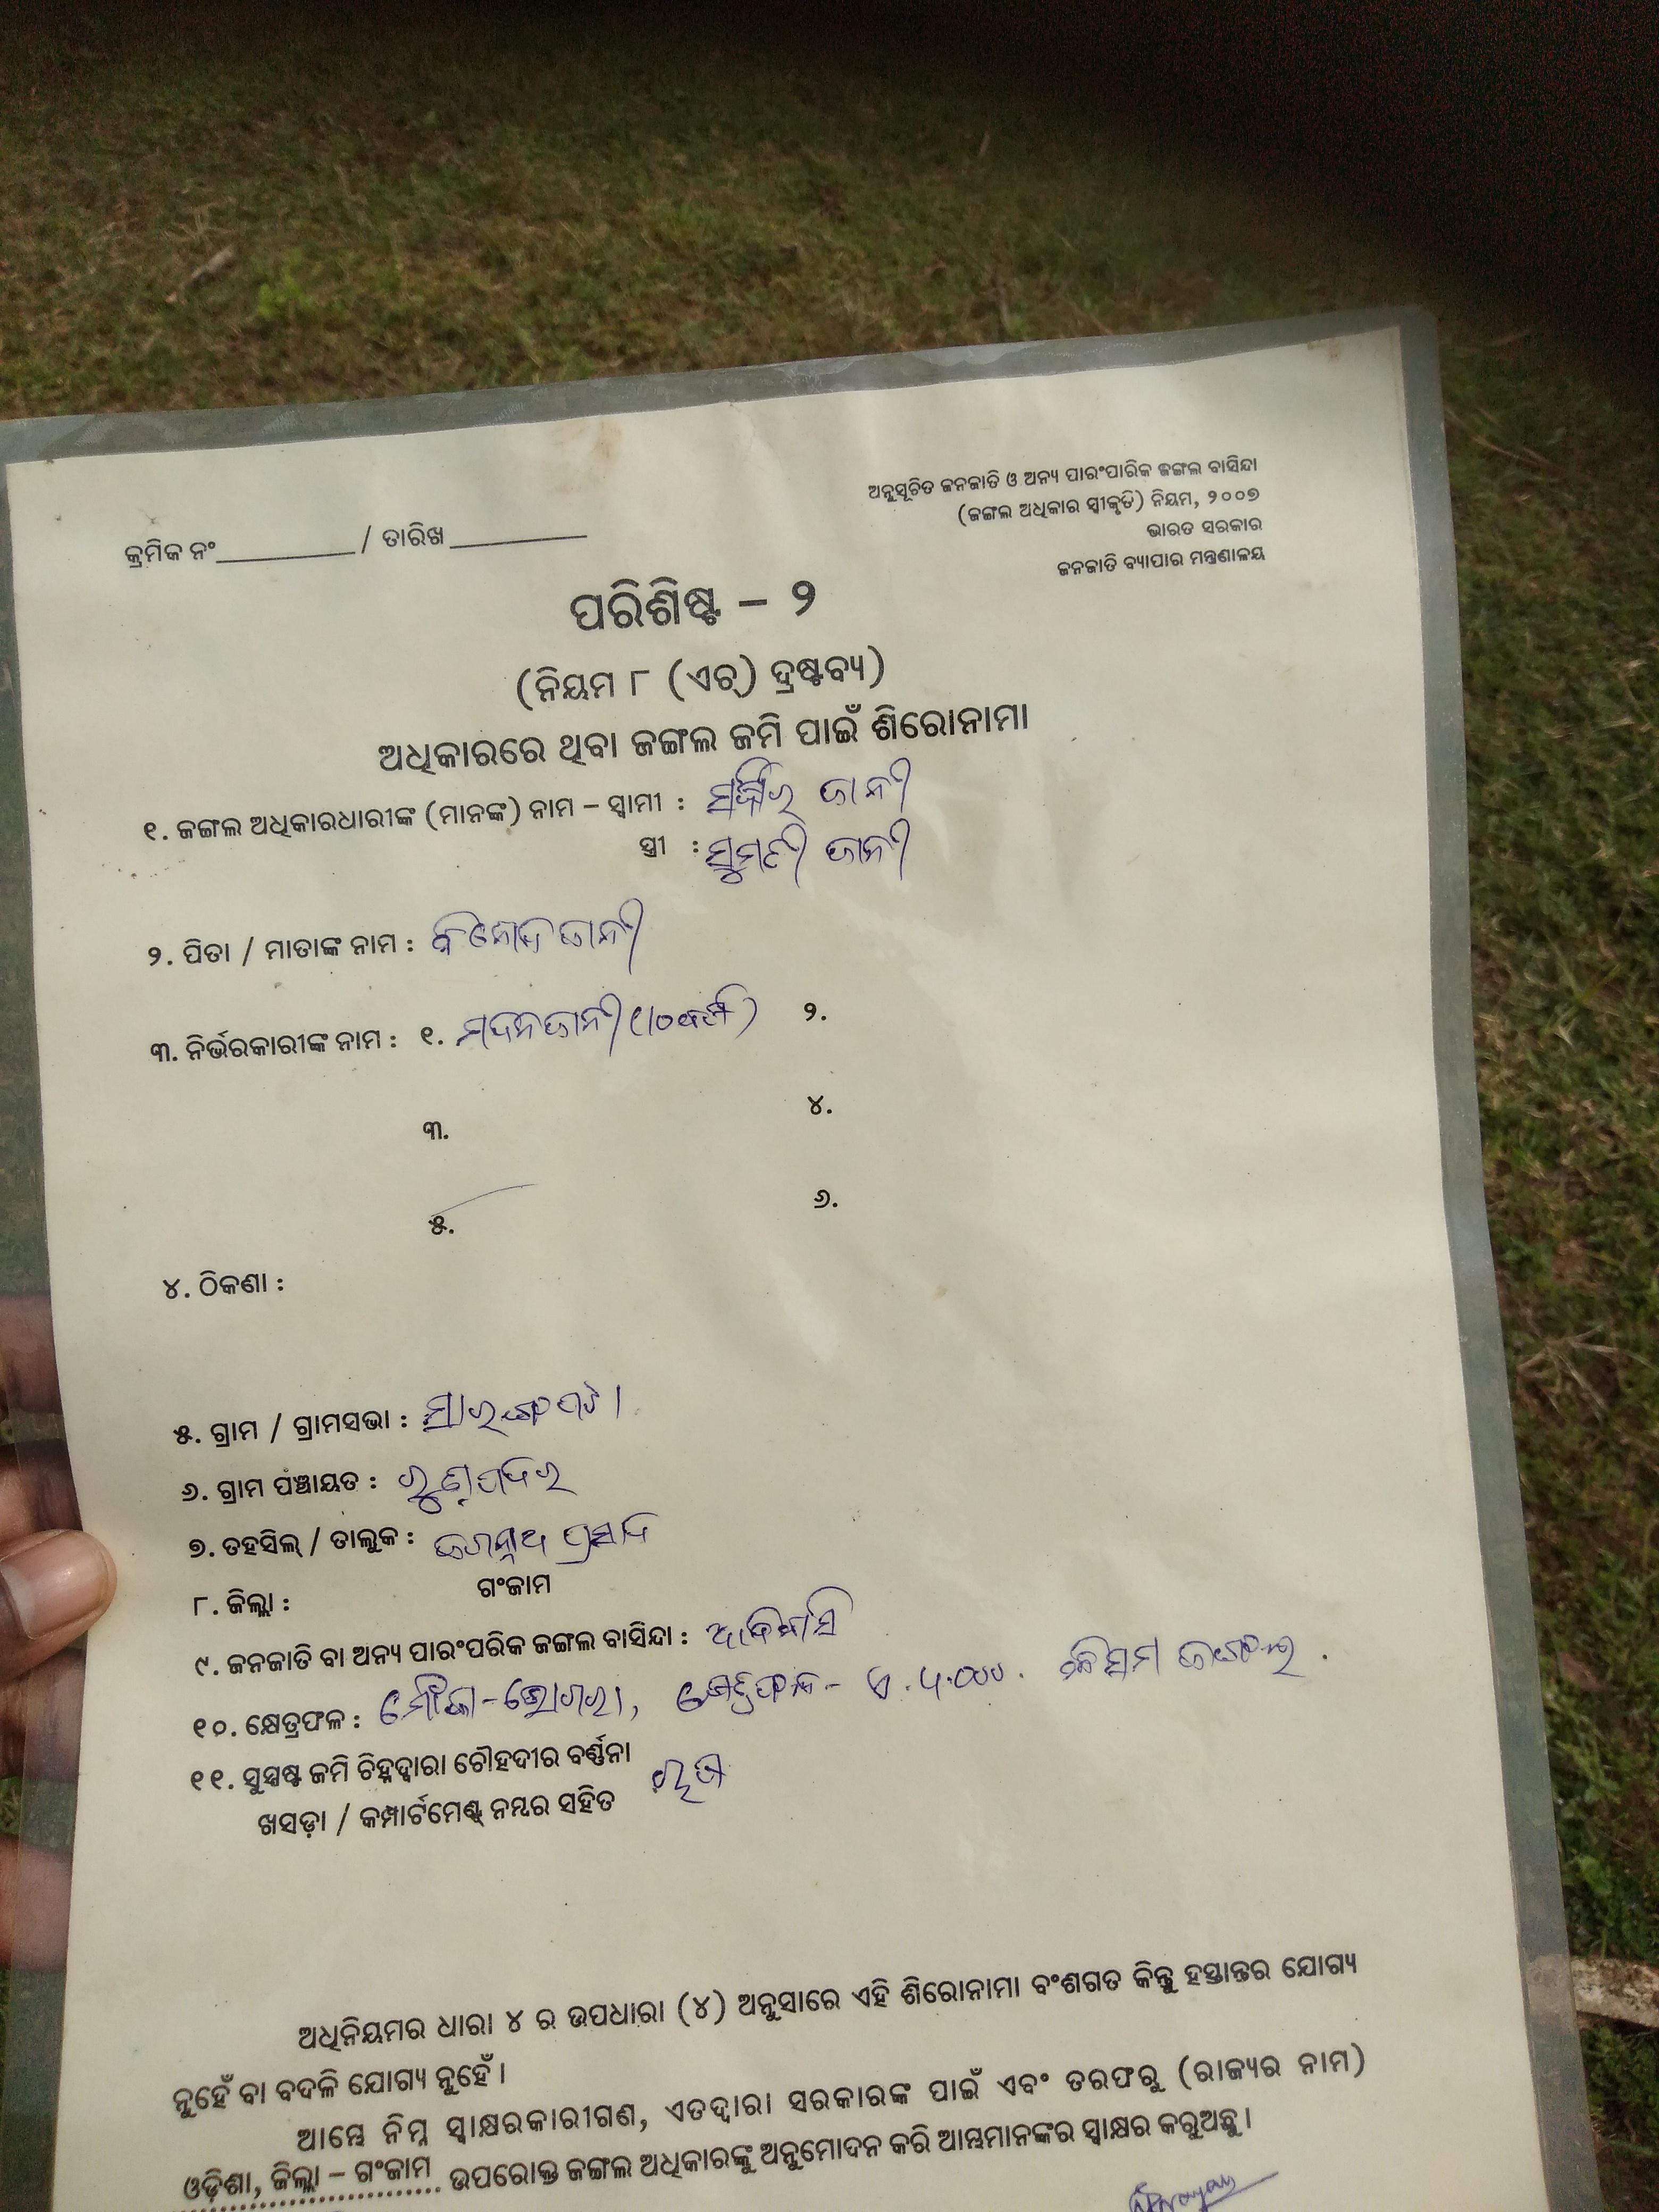 ଅନୁସୂଚିତ ଜନଜାତି ଓ ଅନ୍ୟ ପାରଂପାରିକ ଜଙ୍ଗଲ ବାସିନ୍ଦା
(ଜଙ୍ଗଲ ଅଧିକାର ସ୍ୱୀକୃତି) ନିୟମ, ୨୦୦୭
ଭାରତ ସରକାର
ଜନଜାତି ବ୍ୟାପାର ମନ୍ତ୍ରଣାଳୟ
କ୍ରମିକ ନଂ __________ / ତାରିଖ __________
ପରିଶିଷ୍ଟ – ୨
(ନିୟମ ୮ (ଏଚ୍) ଦ୍ରଷ୍ଟବ୍ୟ)
ଅଧିକାରରେ ଥିବା ଜଙ୍ଗଲ ଜମି ପାଇଁ ଶିରୋନାମା
୧. ଜଙ୍ଗଲ ଅଧିକାରଧାରୀଙ୍କ (ମାନଙ୍କ) ନାମ – ସ୍ୱାମୀ : ଜାନୀ
ସ୍ତ୍ରୀ : ଜାନୀ
୨. ପିତା / ମାତାଙ୍କ ନାମ : ଜାନୀ
୩. ନିର୍ଭରକାରୀଙ୍କ ନାମ : ୧. ମଦନ ଜାନୀ ୨.
୩. ୪.
୫. ୬.
୪. ଠିକଣା :
୫. ଗ୍ରାମ / ଗ୍ରାମସଭା :
୬. ଗ୍ରାମ ପଞ୍ଚାୟତ :
୭. ତହସିଲ୍ / ତାଲୁକ : ଜଗନ୍ନାଥ ପ୍ରସାଦ
୮. ଜିଲ୍ଲା : ଗଂଜାମ
୯. ଜନଜାତି ବା ଅନ୍ୟ ପାରଂପରିକ ଜଙ୍ଗଲ ବାସିନ୍ଦା : ଆଦିବାସି
୧୦. କ୍ଷେତ୍ରଫଳ : ମୌଜା - କିସମ ଜଙ୍ଗଲ
୧୧. ସୁସ୍ପଷ୍ଟ ଜମି ଚିହ୍ନଦ୍ୱାରା ଚୌହଦୀର ବର୍ଣ୍ଣନା
ଖସଡ଼ା / କମ୍ପାର୍ଟମେଣ୍ଟ୍ ନମ୍ବର ସହିତ
ଅଧିନିୟମର ଧାରା ୪ ର ଉପଧାରା (୪) ଅନୁସାରେ ଏହି ଶିରୋନାମା ବଂଶଗତ କିନ୍ତୁ ହସ୍ତାନ୍ତର ଯୋଗ୍ୟ
ନୁହେଁ ବା ବଦଳି ଯୋଗ୍ୟ ନୁହେଁ ।
ଆମ୍ଭେ ନିମ୍ନ ସ୍ୱାକ୍ଷରକାରୀଗଣ, ଏତଦ୍ୱାରା ସରକାରଙ୍କ ପାଇଁ ଏବଂ ତରଫରୁ (ରାଜ୍ୟର ନାମ)
ଓଡ଼ିଶା, ଜିଲ୍ଲା – ଗଂଜାମ ଉପରୋକ୍ତ ଜଙ୍ଗଲ ଅଧିକାରଙ୍କୁ ଅନୁମୋଦନ କରି ଆମ୍ଭମାନଙ୍କର ସ୍ୱାକ୍ଷର କରୁଅଛୁ ।